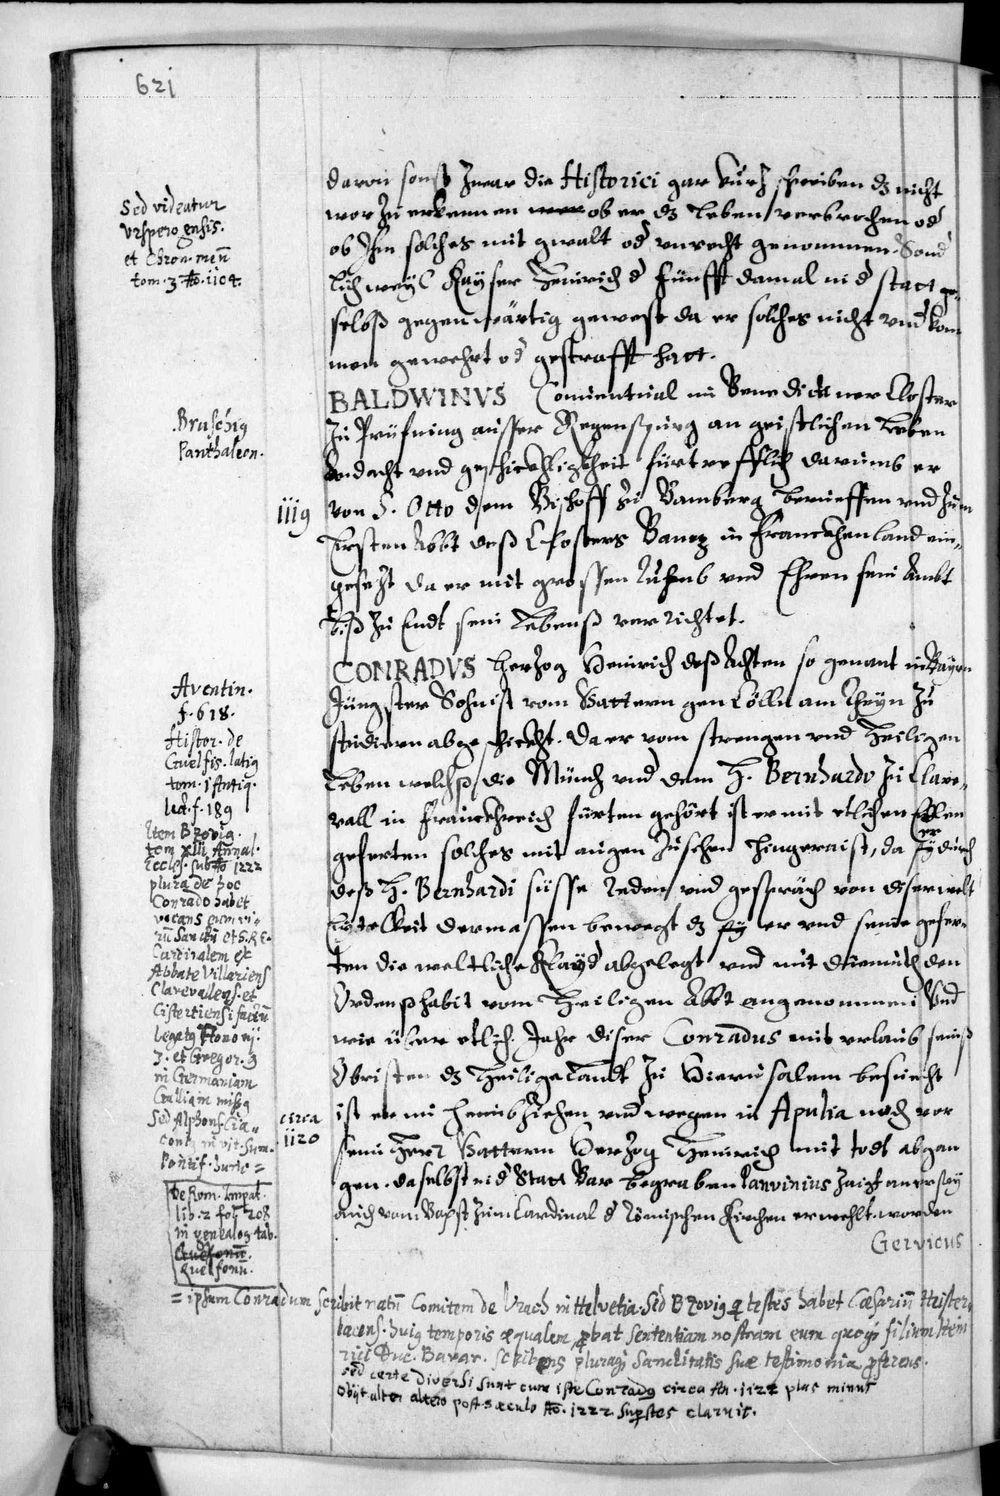 621
Sed videatur
Urspergensis.
et Chron. men̄
tom. 3 Ao. 1104.
daron sonst zwar die Historici gar kurz schreiben dz nicht
wor zu erkennen ob er dz Leben verbrochen od
ob Ihm solches mit gwalt od unrecht genommen. Sond
lich weyl Kayser Heinrich d fünfft damal in d statt
selbst gegenwärtig gewest da er solches nicht und kom
men gewehrt od gestrafft hatt.
Bruschig
Panthaleon.
1119
BALDWINVS Conventual im Benedictiner Closter
zu Prüfning ausser Regenspurg an geistlichen Leben
Andacht und geschickhligkheit fürtrefflich darumb er
von S. Otto dem Bischoff zu Bamberg berueffen und zum
Ersten Abbt deß Closters Bantz in Franckhenland ein-
gesetzt da er mit grossen Ruhmb und Ehren sein Ambt
biß zu Endt sein Lebenß verrichtet.
Aventin.
f. 618.
Histor. de
Guelfis. latig
tom. 1 Antiq.
lect. f. 189
Item Bzovig.
tom XIII Annal.
Eccles. sub Ao 1222
plura de hoc
Conrado habet
vocans eum vi-
rū Sanctū et S.R.E.
Cardinalem ex
Abbate Villariens
Clarevallens. et
Cisterciensi factū
Legatg Honorij.
3. et Gregor. 9
in Germaniam
Galliam missg
Sed Alphons. Cia-
con. in vit. Sum.
Pontif. hunc =
De Rom. Impat.
lib. 2 fol. 208
in genealog. tab.
Guelfonū.
circa
1120
CONRADVS Herzog Heinrich deß Achten so genant in Bayrn
Jüngster Sohn ist vom Vattern gen Cölln am Rheyn zu
studiern abgeschickht. Da er vom strengen und Heiligen
Leben welchß die Münch und dem H. Bernhardo zu Clare-
vall in Franckhreich fürten gehört ist er mit etlichen Edlen
geferten solches mit augen zusehen hingeraist, da er durch
deß H. Bernhardi süsse Reden und gespräch von diser welt
Eytelkeit dermassen bewegt dz er und seine gefer-
ten die weltliche Klayd abgelegt und mit demuth den
Ordenßhabit vom Heiligen Abbt angenommen Und
wie über etlich Jahr diser Conradus mit verlaub seinß
Obristen dz Heilige Landt zu Hierusalem besuecht
ist er im heimbziehen und wegen in Apulia noch vor
sein Herr Vattern Herzog Heinrich mit todt abgan
gen. daselbst in d Statt Bar begraben Panvinius zaigt an er sey
auch vom Bapst zum Cardinal d Römischen Kirchen erwehlt worden
Gervicus
= ipsum Conradum scribit natū Comitem de Urach in Helvetia. Sed Bzovig q testes habet Cæsariū Heister-
bacens. huig temporis æqualem, probat sententiam nostram eum quoqs filium Hein
rici Duc. Bavar. scribens pluraqs Sanctitatis suæ testimonia proferens.
sed certe diversi sunt cum iste Conradg circa An. 1122 plus minus
obijt alter altero post sæculo Ao. 1222 superstes claruit.